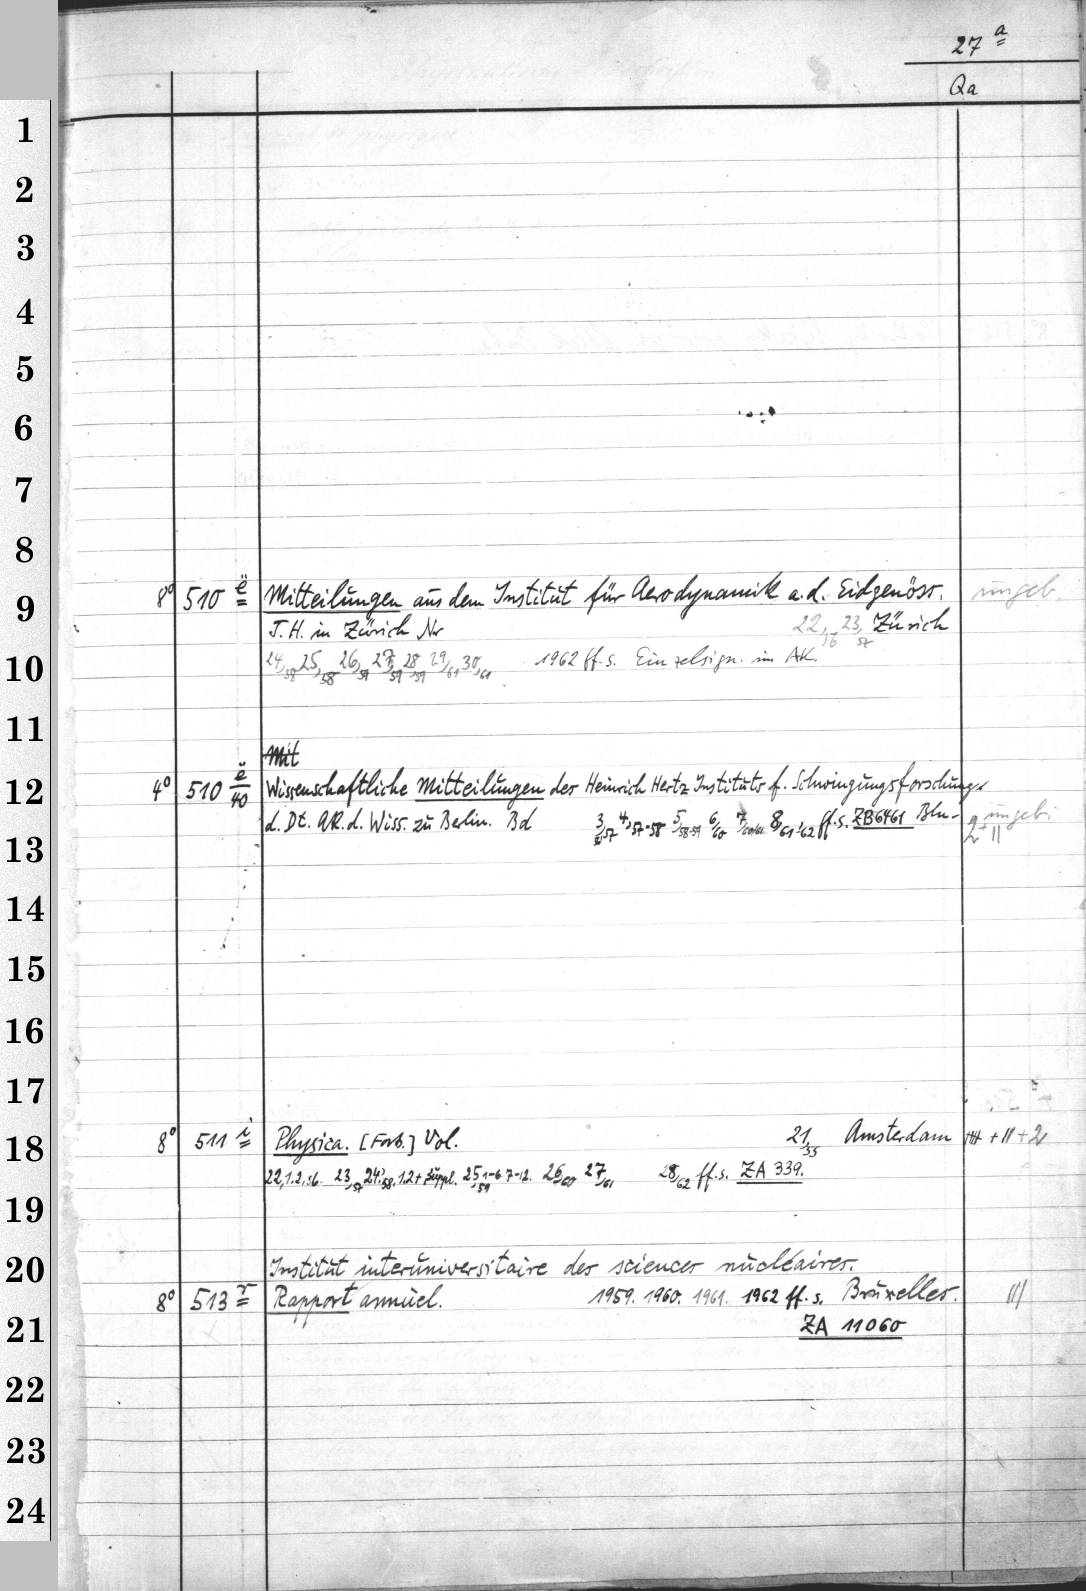 27 a
Qa
1
2
3
4
5
6
7
8
9
10
11
12
13
14
15
16
17
18
19
20
21
22
23
24
8° 510 ë Mitteilungen aus dem Institut für Aerodynamik a. d. Eidgenöss. ungeb.
T. H. in Zürich Nr 22,56 23,57 Zürich
24,58 25,58 26,59 27,59 28,59 29,61 30,61 1962 ff. s. Einzelsign. im AK.
Mit
4° 510 ë/40 Wissenschaftliche Mitteilungen des Heinrich Hertz Instituts f. Schwingungsforschungs
d. Dt. Ak. d. Wiss. zu Berlin. Bd 3,57 4,57-58 5,58-59 6,60 7,60/61 8,61/62 ff. s. ZB 6461 Bln- ungeb.
2 + 11
8° 511 i Physica. [Forts.] Vol. 21,55 Amsterdam + 11 + 2
22,1.2.56. 23,57 24,58. 1.2 + Suppl. 25,59 1-6 7-12. 26,60 27,61 28,62 ff. s. ZA 339.
Institut interuniversitaire des sciences nucléaires.
8° 513 r Rapport annuel. 1959. 1960. 1961. 1962 ff. s. Bruxelles. III
ZA 11060